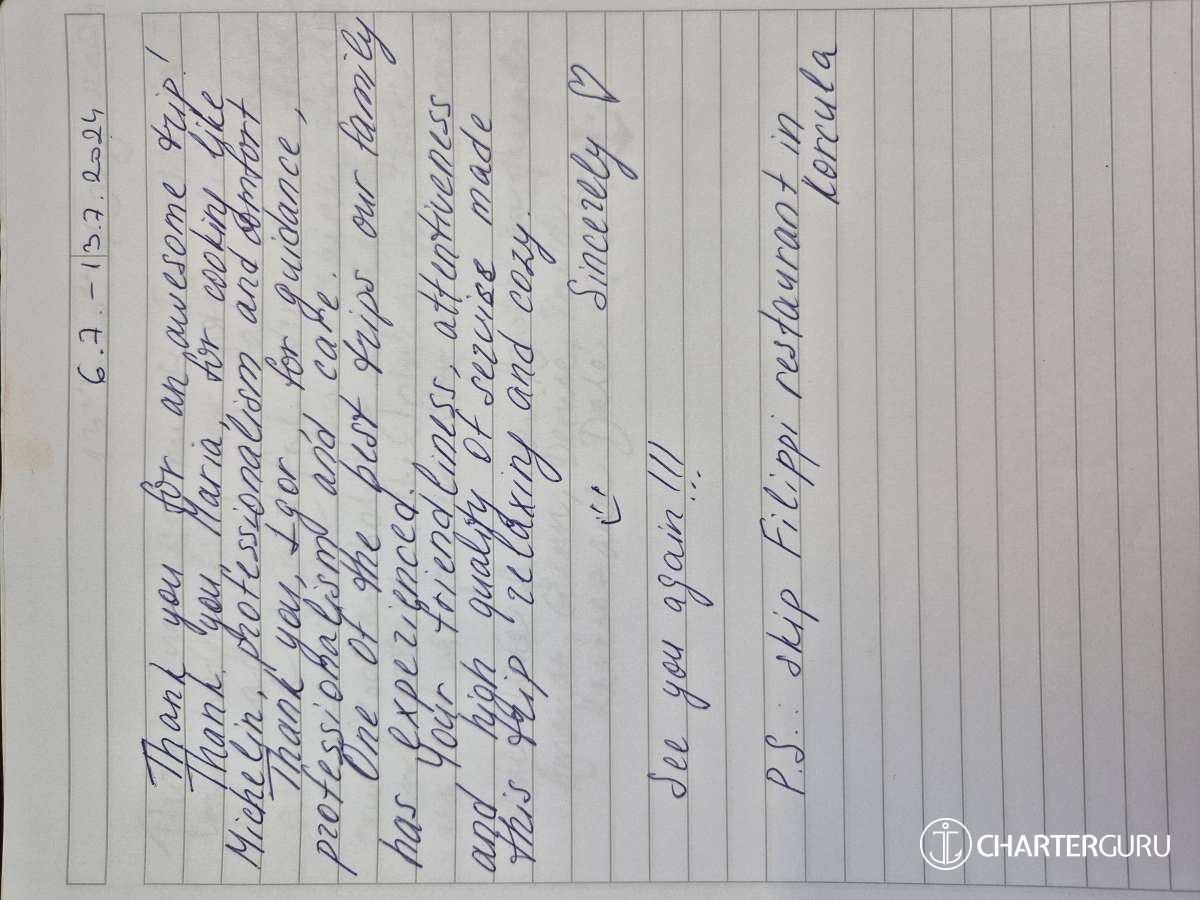 6.7. - 13.7.2024
Thank you for an awesome trip!
Thank you, Maria, for cooking like
Michelin, professionalism and comfort
Thank you, Igor, for guidance,
professionalism and care.
One of the best trips our family
has experienced.
Your friendliness, attentiveness
and high quality of servise made
this trip relaxing and cozy.
Sincerely ♡
See you again!!!
P.S.: skip Filippi restaurant in
Korcula
CHARTERGURU